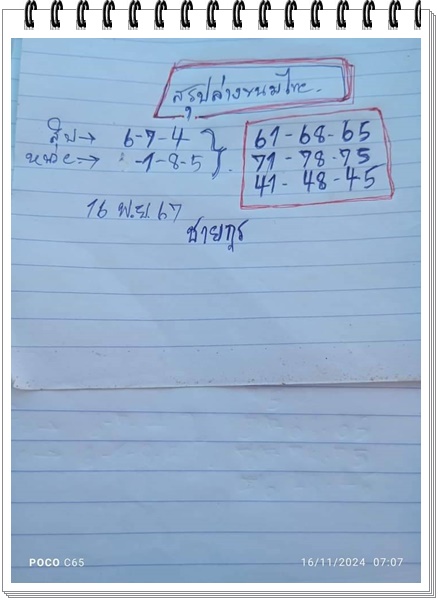 สรุปล่างขนมไทย.
สิบ→ 6-7-4
หน่วย→ -1-8-5
61-68-65
71-78-75
41-48-45
16 พ.ย 67
ชายกุร
POCO C65
16/11/2024 07:07